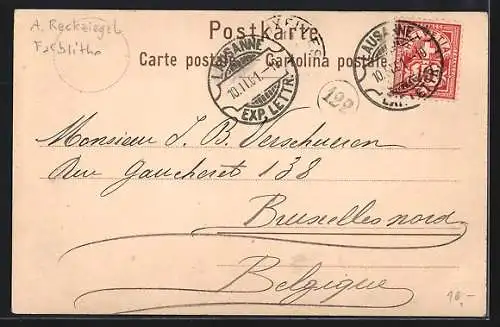 A. Reckziegel
Farblitho
Postkarte
Carte postale. Cartolina postale.
LAUSANNE
10.II.01.
EXP. LETTR.
LAUSANNE
EXP. LETTR.
10
122
Monsieur J. B. Verschueren
Rue Gaucheret 138
Bruxelles nord.
Belgique
10,-